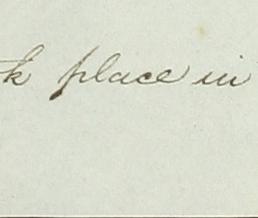 k place in